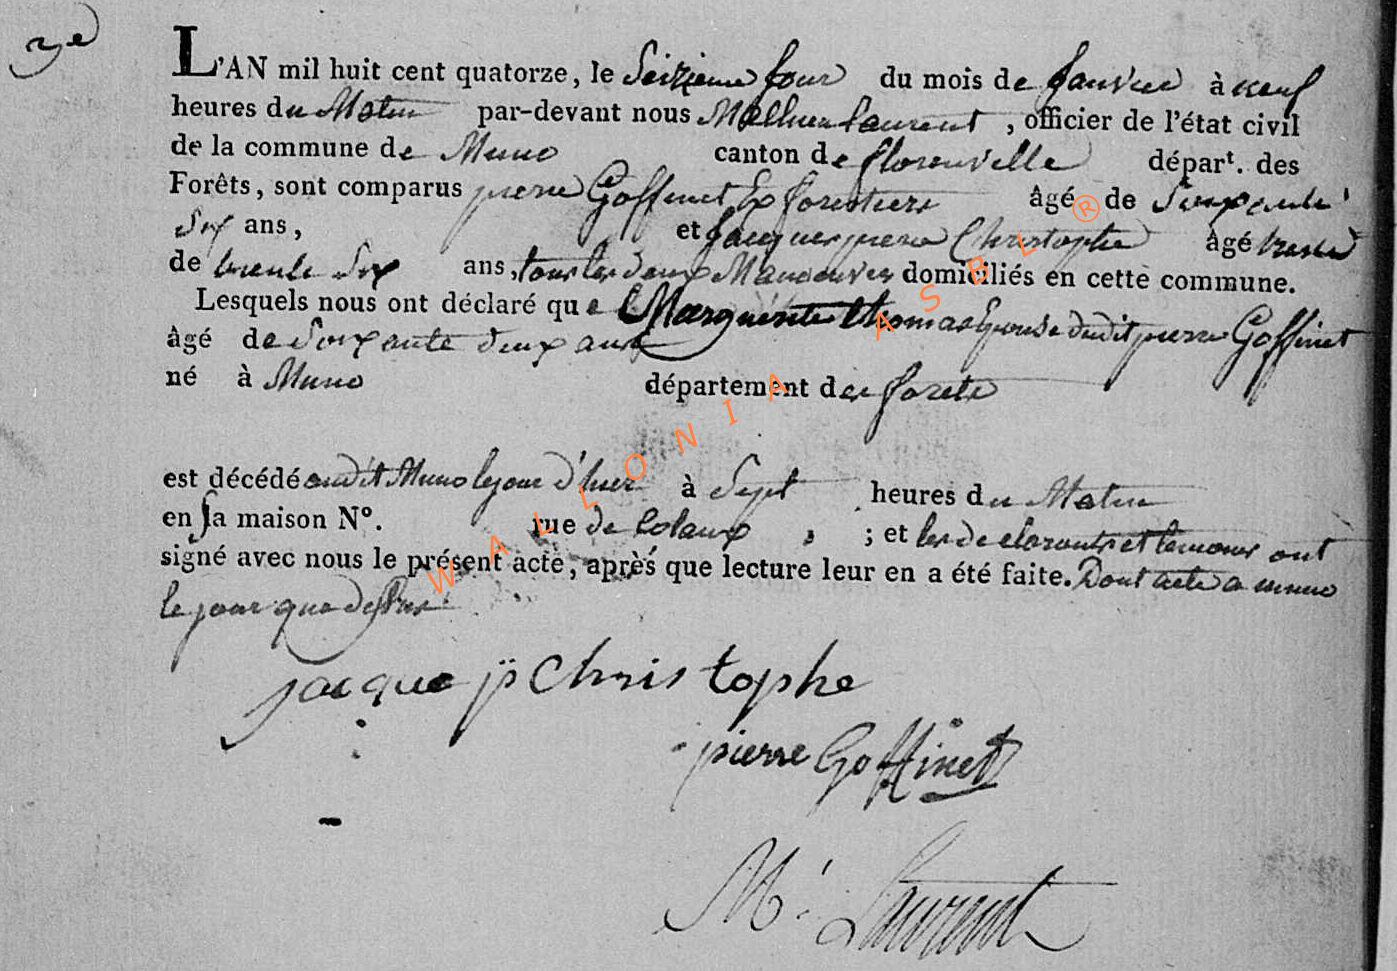 2e
L'AN mil huit cent quatorze, le Seizieme jour du mois de Janvier à neuf
heures du Matin par-devant nous Mathieu Laurent, officier de l'état civil
de la commune de Muno canton de florenville dépar^t. des
Forêts, sont comparus pierre Goffinet Ex forestiers âgé de Soixante
Six ans, et Jacques pierre Christophe âgé
de trente Six ans, tous les deux Manouvriers domiciliés en cette commune.
Lesquels nous ont déclaré que Marguerite thomas Epouse dudit pierre Goffinet
âgé de Soixante deux ans
né à Muno département des forets
est décédé audit Muno le jour d'hier à Sept heures du Matin
en sa maison N°. rue de ; et les declarants et temoins ont
signé avec nous le présent acte, après que lecture leur en a été faite. Dont acte a muno
le jour que dessus
jacque p christophe
pierre Goffinet
M^t. Laurent
WALLONIA ASBL ®